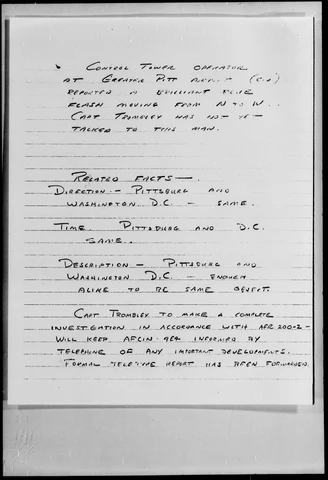 Control Tower operator
at Greater Pitt
reported a brilliant blue
flash moving from N to W..
Capt Trombley has not yet
talked to this man.
Related Facts —.
Direction — Pittsburg and
Washington D.C. — same.
Time Pittsburg and D.C.
same..
Description — Pittsburg and
Washington D.C — enough
alike to be same object.
Capt Trombley to make a complete
investigation in accordance with AFR 200-2 -
will keep AFCIN-4E4 informed by
telephone of any important developments.
Formal teletype report has been forwarded.